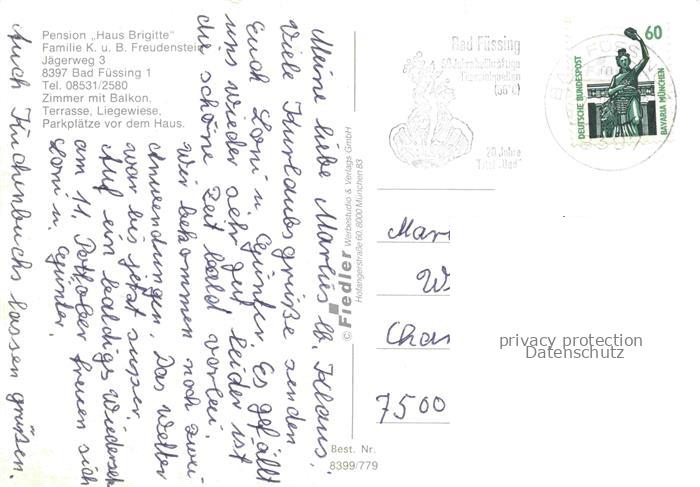 Pension „Haus Brigitte“
Familie K. u. B. Freudenstein
Jägerweg 3
8397 Bad Füssing 1
Tel. 08531/2580
Zimmer mit Balkon,
Terrasse, Liegewiese,
Parkplätze vor dem Haus.
Meine liebe Marlies lb. Klaus,
Viele Kurlaubsgrüße senden
Euch Loni u. Günter. Es gefällt
uns wieder sehr gut leider ist
die schöne Zeit bald vorbei.
Wir bekommen noch zwei
Anwendungen. Das Wetter
war bis jetzt super.
Auf ein baldiges Wiedersehn
am 11. Oktober freuen sich
Loni u. Günter.
Auch Kuchenbuchs lassen grüßen.
© Fiedler Werbestudio & Verlags GmbH
Hofangerstraße 60, 8000 München 83
Best. Nr.
8399/779
Bad Füssing
20 Jahre
Titel „Bad“
BAD FÜSSING
60
DEUTSCHE BUNDESPOST
BAVARIA MÜNCHEN
Mar
W
Cha
7500
privacy protection
Datenschutz